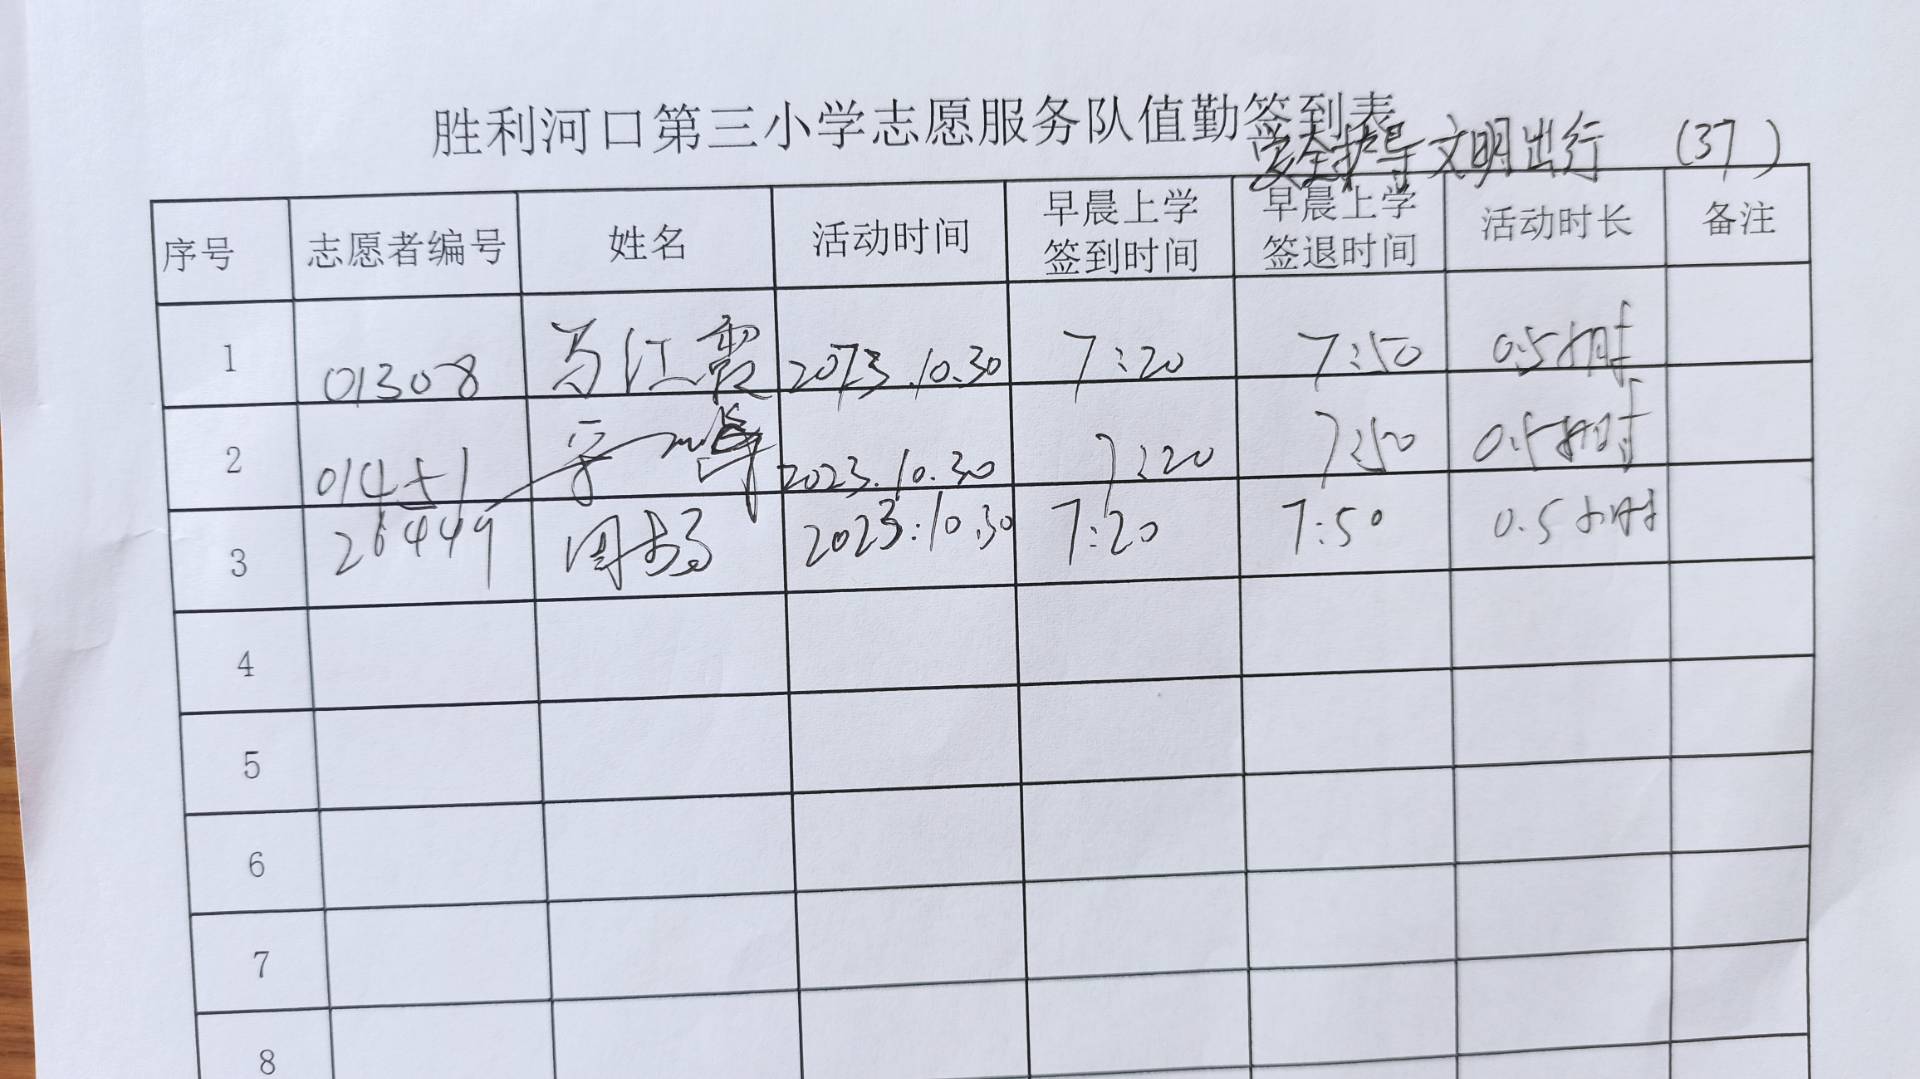 胜利河口第三小学志愿服务队值勤签到表
安全护导文明出行 (37)
序号 志愿者编号 姓名 活动时间 早晨上学签到时间 早晨上学签退时间 活动时长 备注
1 01308 马江霞 2023.10.30 7:20 7:50 0.5小时
2 01451 2023.10.30 7:20 7:50 0.5小时
3 26449 周 2023.10.30 7:20 7:50 0.5小时
4
5
6
7
8